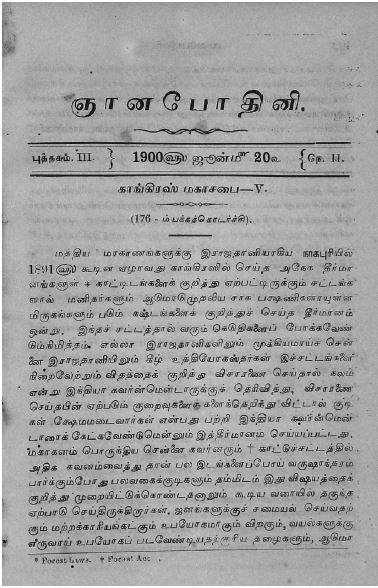 ஞானபோதினி.
புத்தகம். III. } 1900௵ ஜூன்௴ 20௳ { நெ. 11.
காங்கிரஸ் மகாசபை—V.
(176 - ம் பக்கத்தொடர்ச்சி).
மத்திய மாகாணங்களுக்கு இராஜதானியாகிய நாகபுரியில்
1891௵ கூடின ஏழாவது காங்கிரஸில் செய்த அநேக தீர்மா
னங்களுள் * காட்டிடங்களைக் குறித்து ஏற்பட்டிருக்கும் சட்டங்க
ளால் மனிதர்களும் ஆடுமாடுமுதலிய சாக பக்ஷணிகளாயுள்ள
மிருகங்களும் படும் கஷ்டங்களைக் குறித்துச் செய்த தீர்மானம்
ஒன்று. இந்தச் சட்டத்தால் வரும் கெடுதிகளைப் போக்கவேண்
டும்நிமித்தம், எல்லா இராஜதானிகளிலும் முக்கியமாய்ச் சென்
னை இராஜதானியிலும் கீழ் உத்தியோகஸ்தர்கள் இச்சட்டங்களை
நிறைவேற்றும் விதத்தைக் குறித்து விசாரணை செய்தால் நலம்
என்று இந்தியா கவர்ன்மெண்டாருக்குத் தெரிவித்து, விசாரணை
செய்தபின் ஏற்படும் குறைவுகளைக் களைந்தெறிந்து விட்டால் குடி
கள் க்ஷேமமடைவார்கள் என்பது பற்றி இந்தியா கவர்ன்மெண்
டாரைக் கேட்கவேண்டுமென்றும் இத்தீர்மானம் செய்யப்பட்டது.
மகாகனம் பொருந்திய சென்னை கவர்னரும் † காட்டுச்சட்டத்தில்
அதிக கவனம்வைத்து தான் பல இடங்களைப்போய் வருஷாந்தரம்
பார்க்கும்போது பலவகைக்குடிகளும் தம்மிடம் இதுவிஷயத்தைக்
குறித்து முறையிட்டுக்கொண்டதனாலும் கூடிய வரையில் தகுந்த
ஏற்பாடு செய்திருக்கிறார்கள். ஜனங்களுக்குச் சமையல் செய்வதற்
கும் மற்றக்காரியங்கட்கும் உபயோகமாகும் விறகும், வயல்களுக்கு
எருவாய் உபயோகப் படவேண்டியதற்குரிய தழைகளும், ஆடுமா
* Forest Laws. † Forest Act.